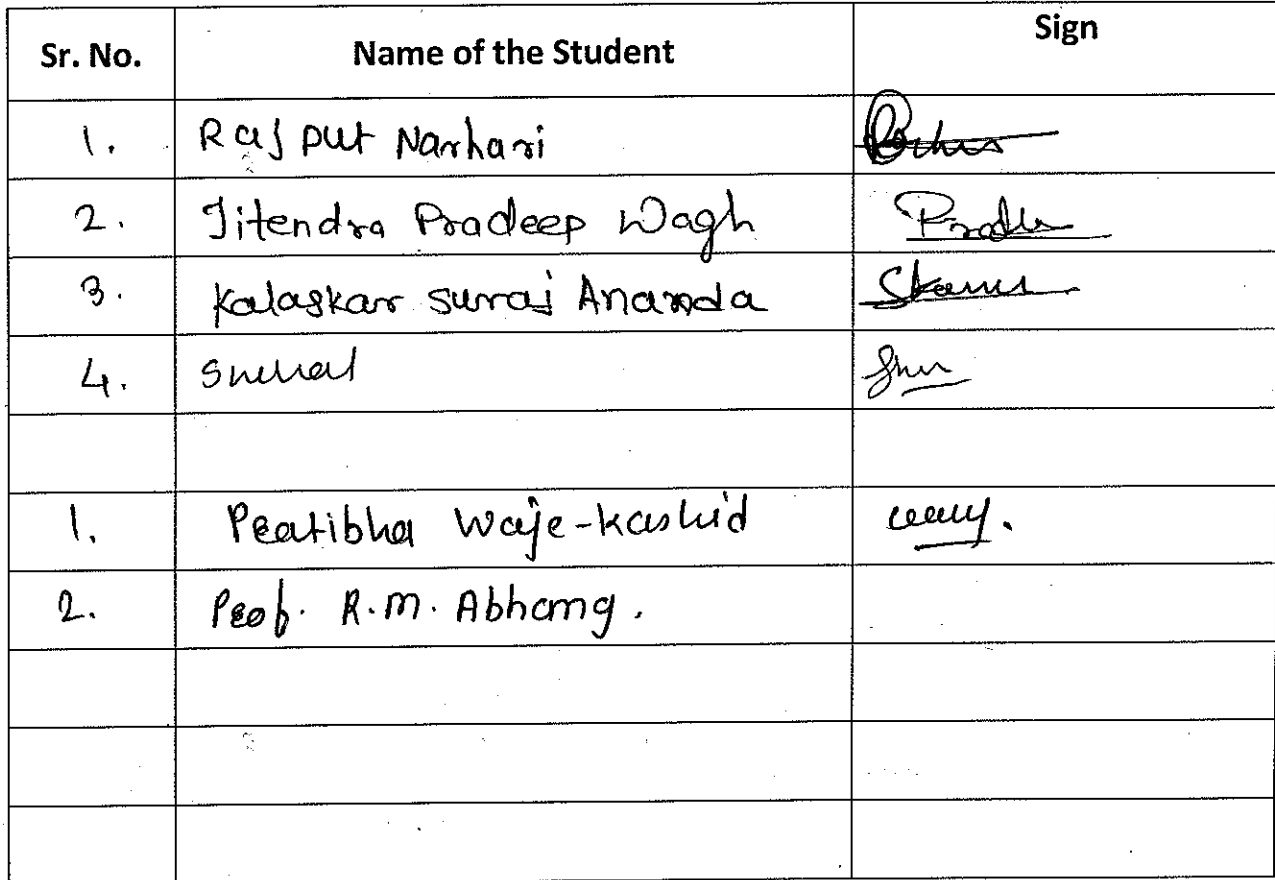 Sr. No. Name of the Student Sign
1. Rajput Narhari
2. Jitendra Pradeep Wagh
3. Kalaskar Suraj Ananda
4. Snehal
1. Pratibha Waje-Kashid
2. Prof. R.M. Abhang.